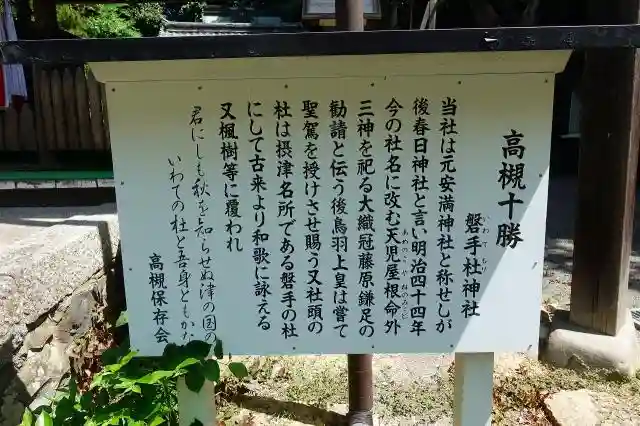 高槻十勝
磐手社神社
いわてもり
当社は元安満神社と称せしが
後春日神社と言い明治四十四年
今の社名に改む天児屋根命外
あめのこやねのみこと
三神を祀る大織冠藤原鎌足の
勧請と伝う後鳥羽上皇は嘗て
聖駕を授けさせ賜う又社頭の
杜は摂津名所である磐手の杜
にして古来より和歌に詠える
又楓樹等に覆われ
君にしも秋を知らせぬ津の国の
いわての杜と吾身ともかな
高槻保存会